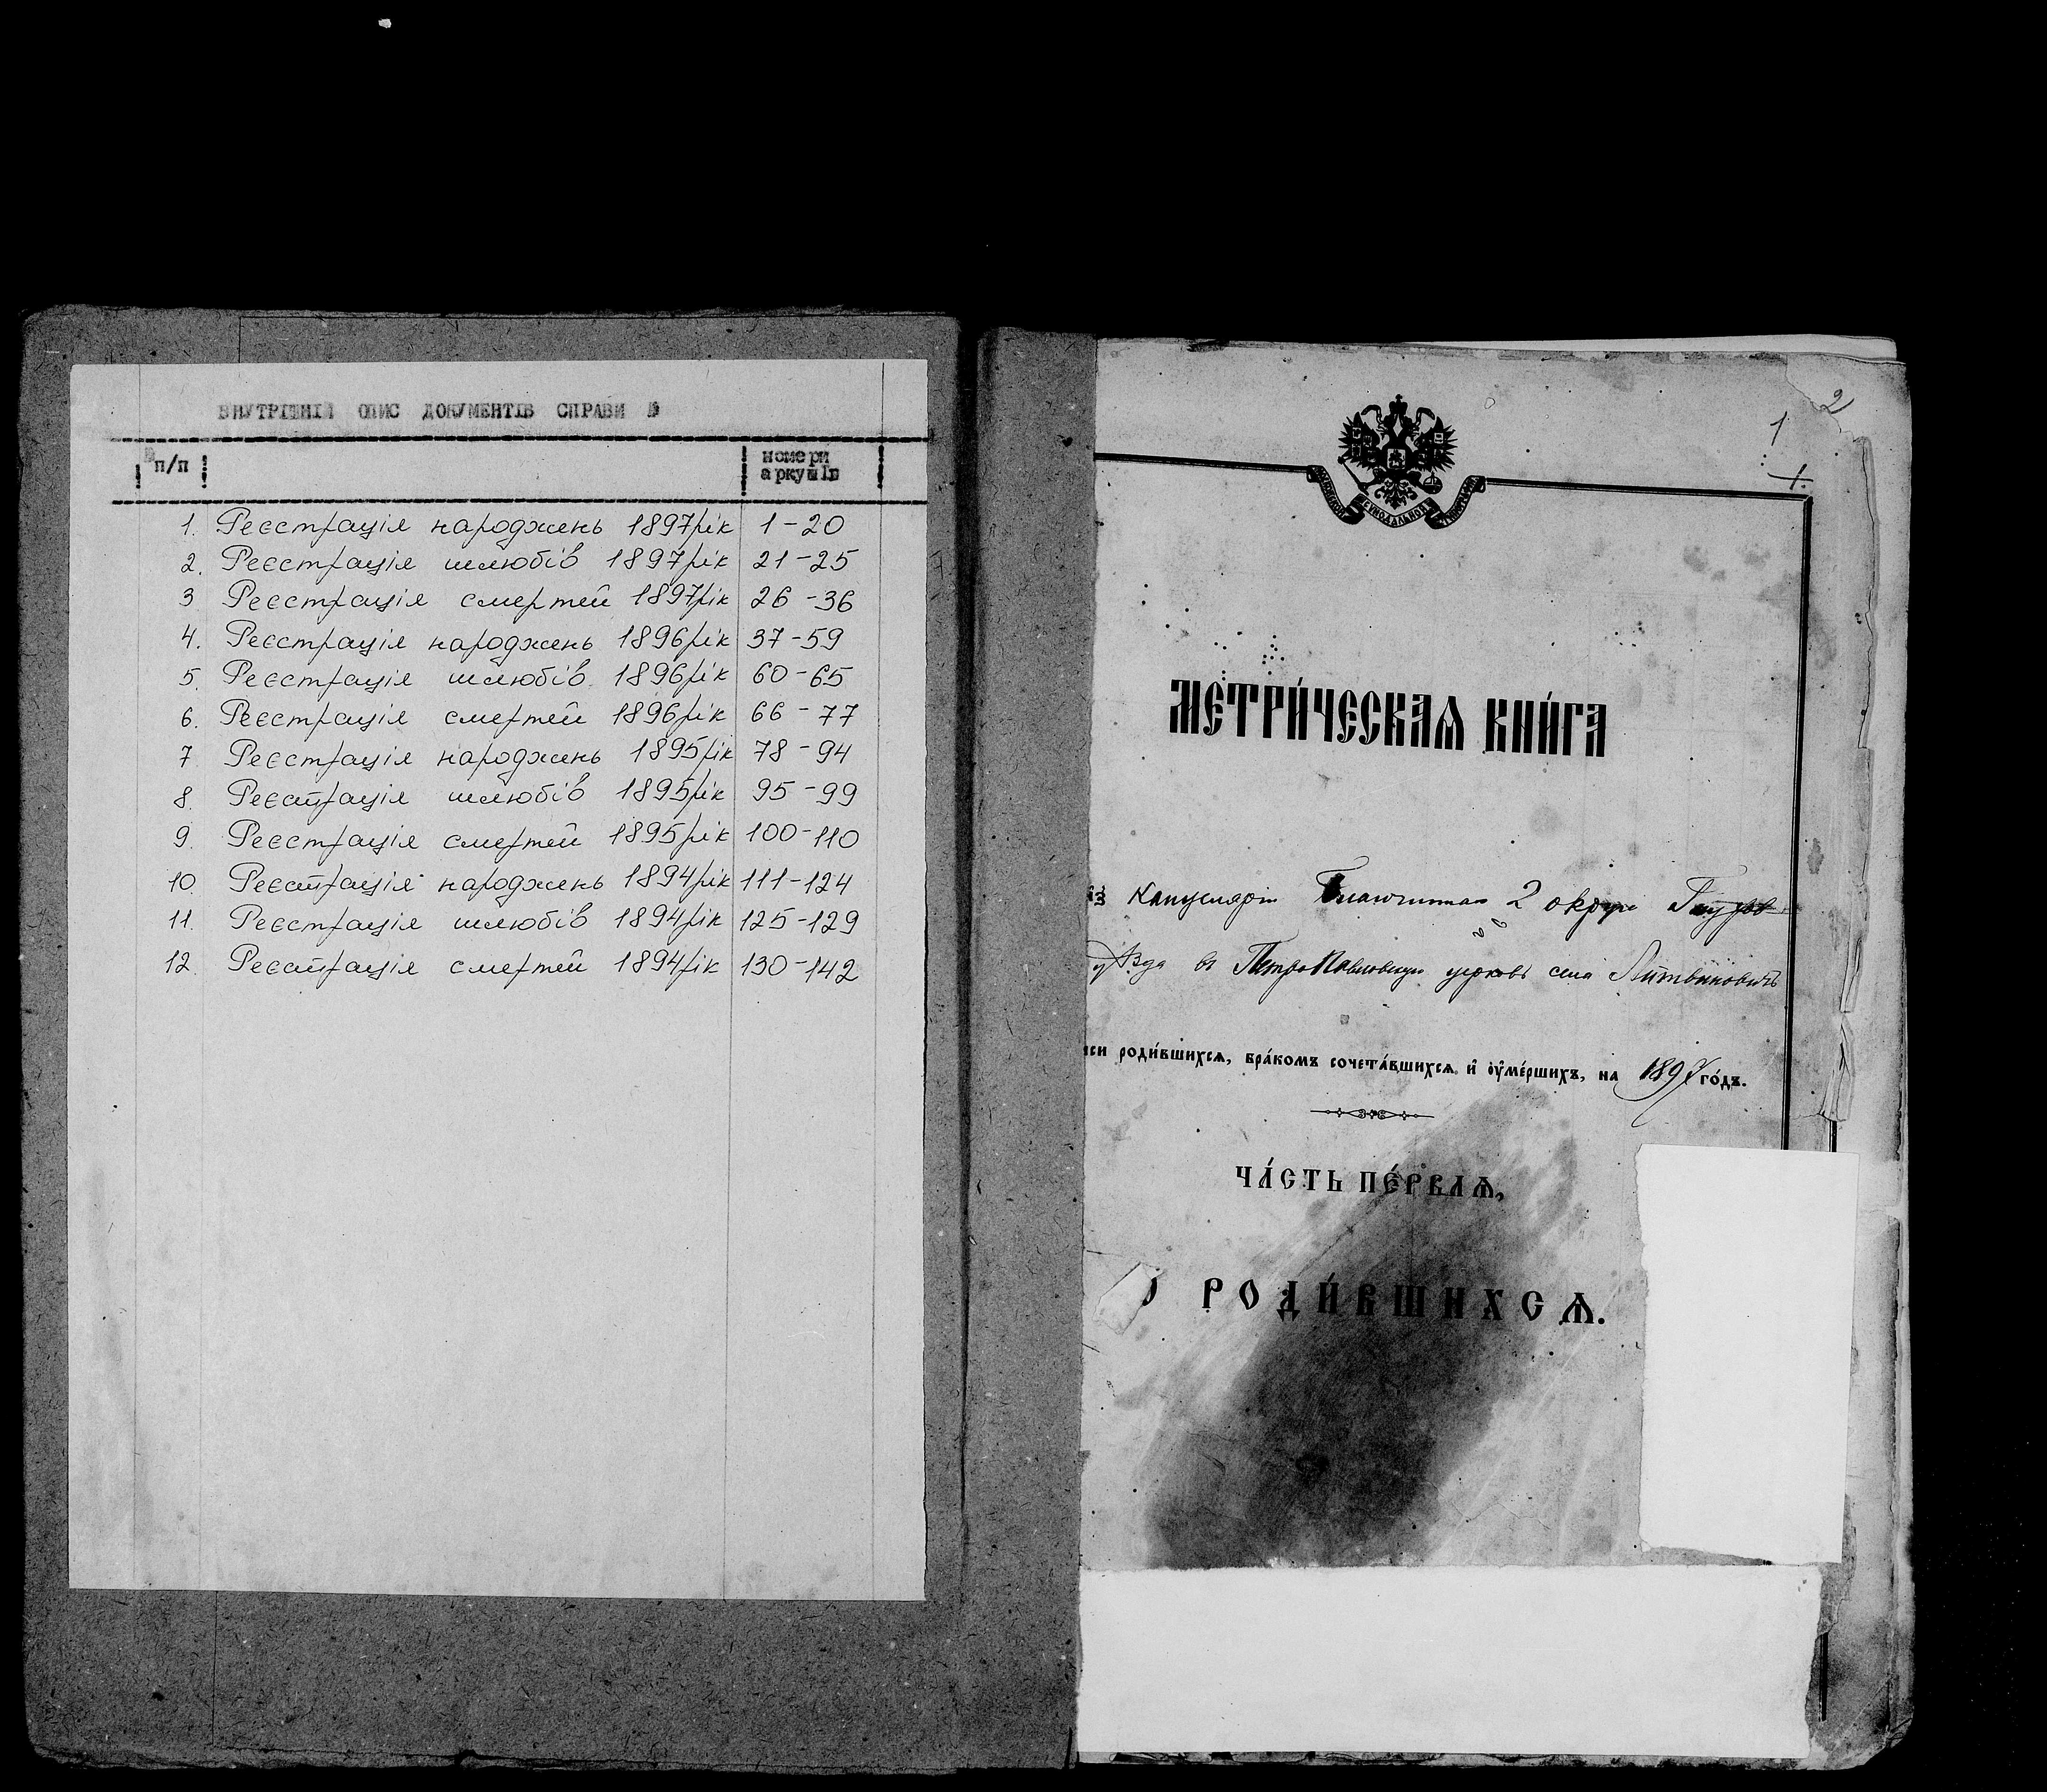 ВНУТРІШНІЙ ОПИС ДОКУМЕНТІВ СПРАВИ №
№ п/п
номери
аркушів
1. Реєстрація народжень 1897рік 1-20
2. Реєстрація шлюбів 1897рік 21-25
3 Реєстрація смертей 1897рік 26-36
4. Реєстрація народжень 1896рік 37-59
5. Реєстрація шлюбів 1896рік 60-65
6. Реєстрація смертей 1896рік 66-77
7 Реєстрація народжень 1895рік 78-94
8. Реєстрація шлюбів 1895рік 95-99
9. Реєстрація смертей 1895рік 100-110
10. Реєстрація народжень 1894рік 111-124
11. Реєстрація шлюбів 1894рік 125-129
12. Реєстрація смертей 1894рік 130-142
2
1
1.
МЕТРИ́ЧЕСКАѦ КНИ́ГА
из Канцеляріи Благочиннаго 2 округа Глухов
уѣзда въ Петро Павловскую церковь села Литвиновичъ
иси роди́вшихсѧ, бра́комъ сочета́вшихсѧ и҆ ᲂу҆ме́ршихъ, на 1897 го́дъ.
ЧА́СТЬ ПЕ́РВАѦ,
О РОДИ́ВШИХСѦ.